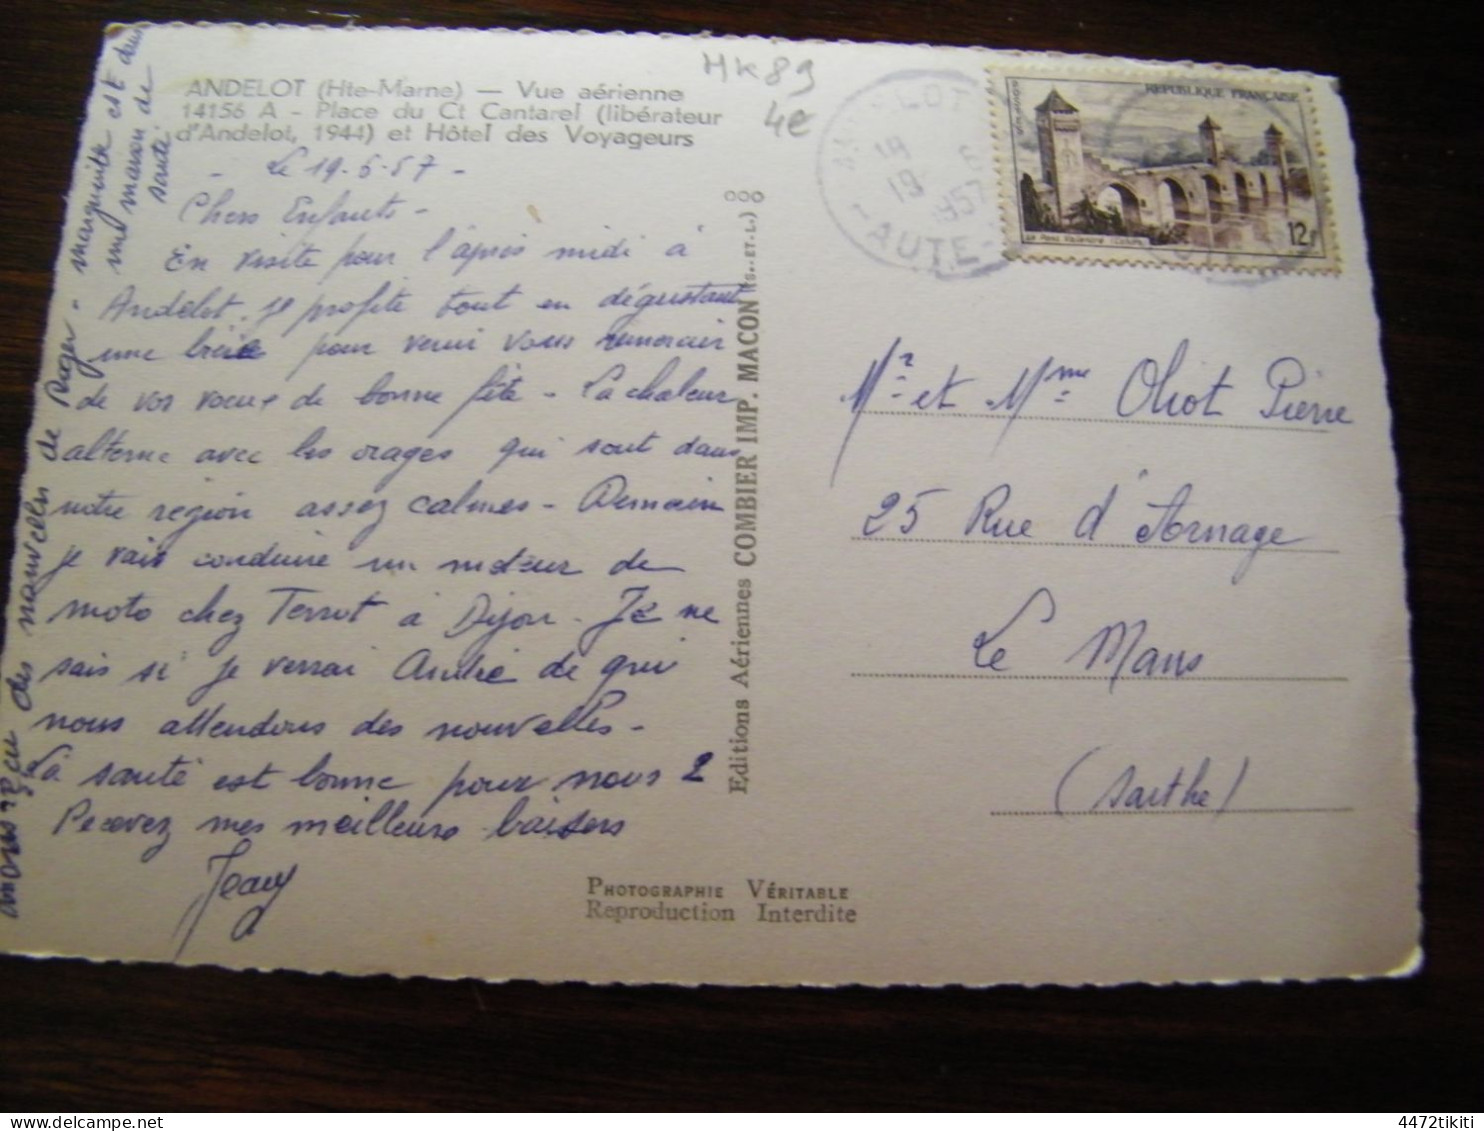 ANDELOT (Hte-Marne) — Vue aérienne
14156 A - Place du Ct Cantarel (libérateur
d'Andelot, 1944) et Hôtel des Voyageurs
HK89
4e
- Le 19-6-57 -
Chers Enfants -
En visite pour l'après midi à
Andelot. Je profite tout en dégustant
une bière pour venir vous
de vos voeux de bonne fête - La chaleur
alterne avec les orages qui sont dans
notre région assez calmes - Demain
je vais conduire un moteur de
moto chez Terrot à Dijon. Je ne
sais si je verrai André de qui
nous attendons des nouvelles -
La santé est bonne pour nous 2
Recevez mes meilleurs baisers
Jeany
des nouvelles de Roger - marguerite est dans
maison de
santé
Editions Aériennes COMBIER IMP. MACON (S.-ET-L.)
PHOTOGRAPHIE VÉRITABLE
Reproduction Interdite
REPUBLIQUE FRANÇAISE
12F
18
19 6
1957
Mr et Mme Oliot Pierre
25 Rue d'Arnage
Le Mans
(Sarthe)
4472tikiti